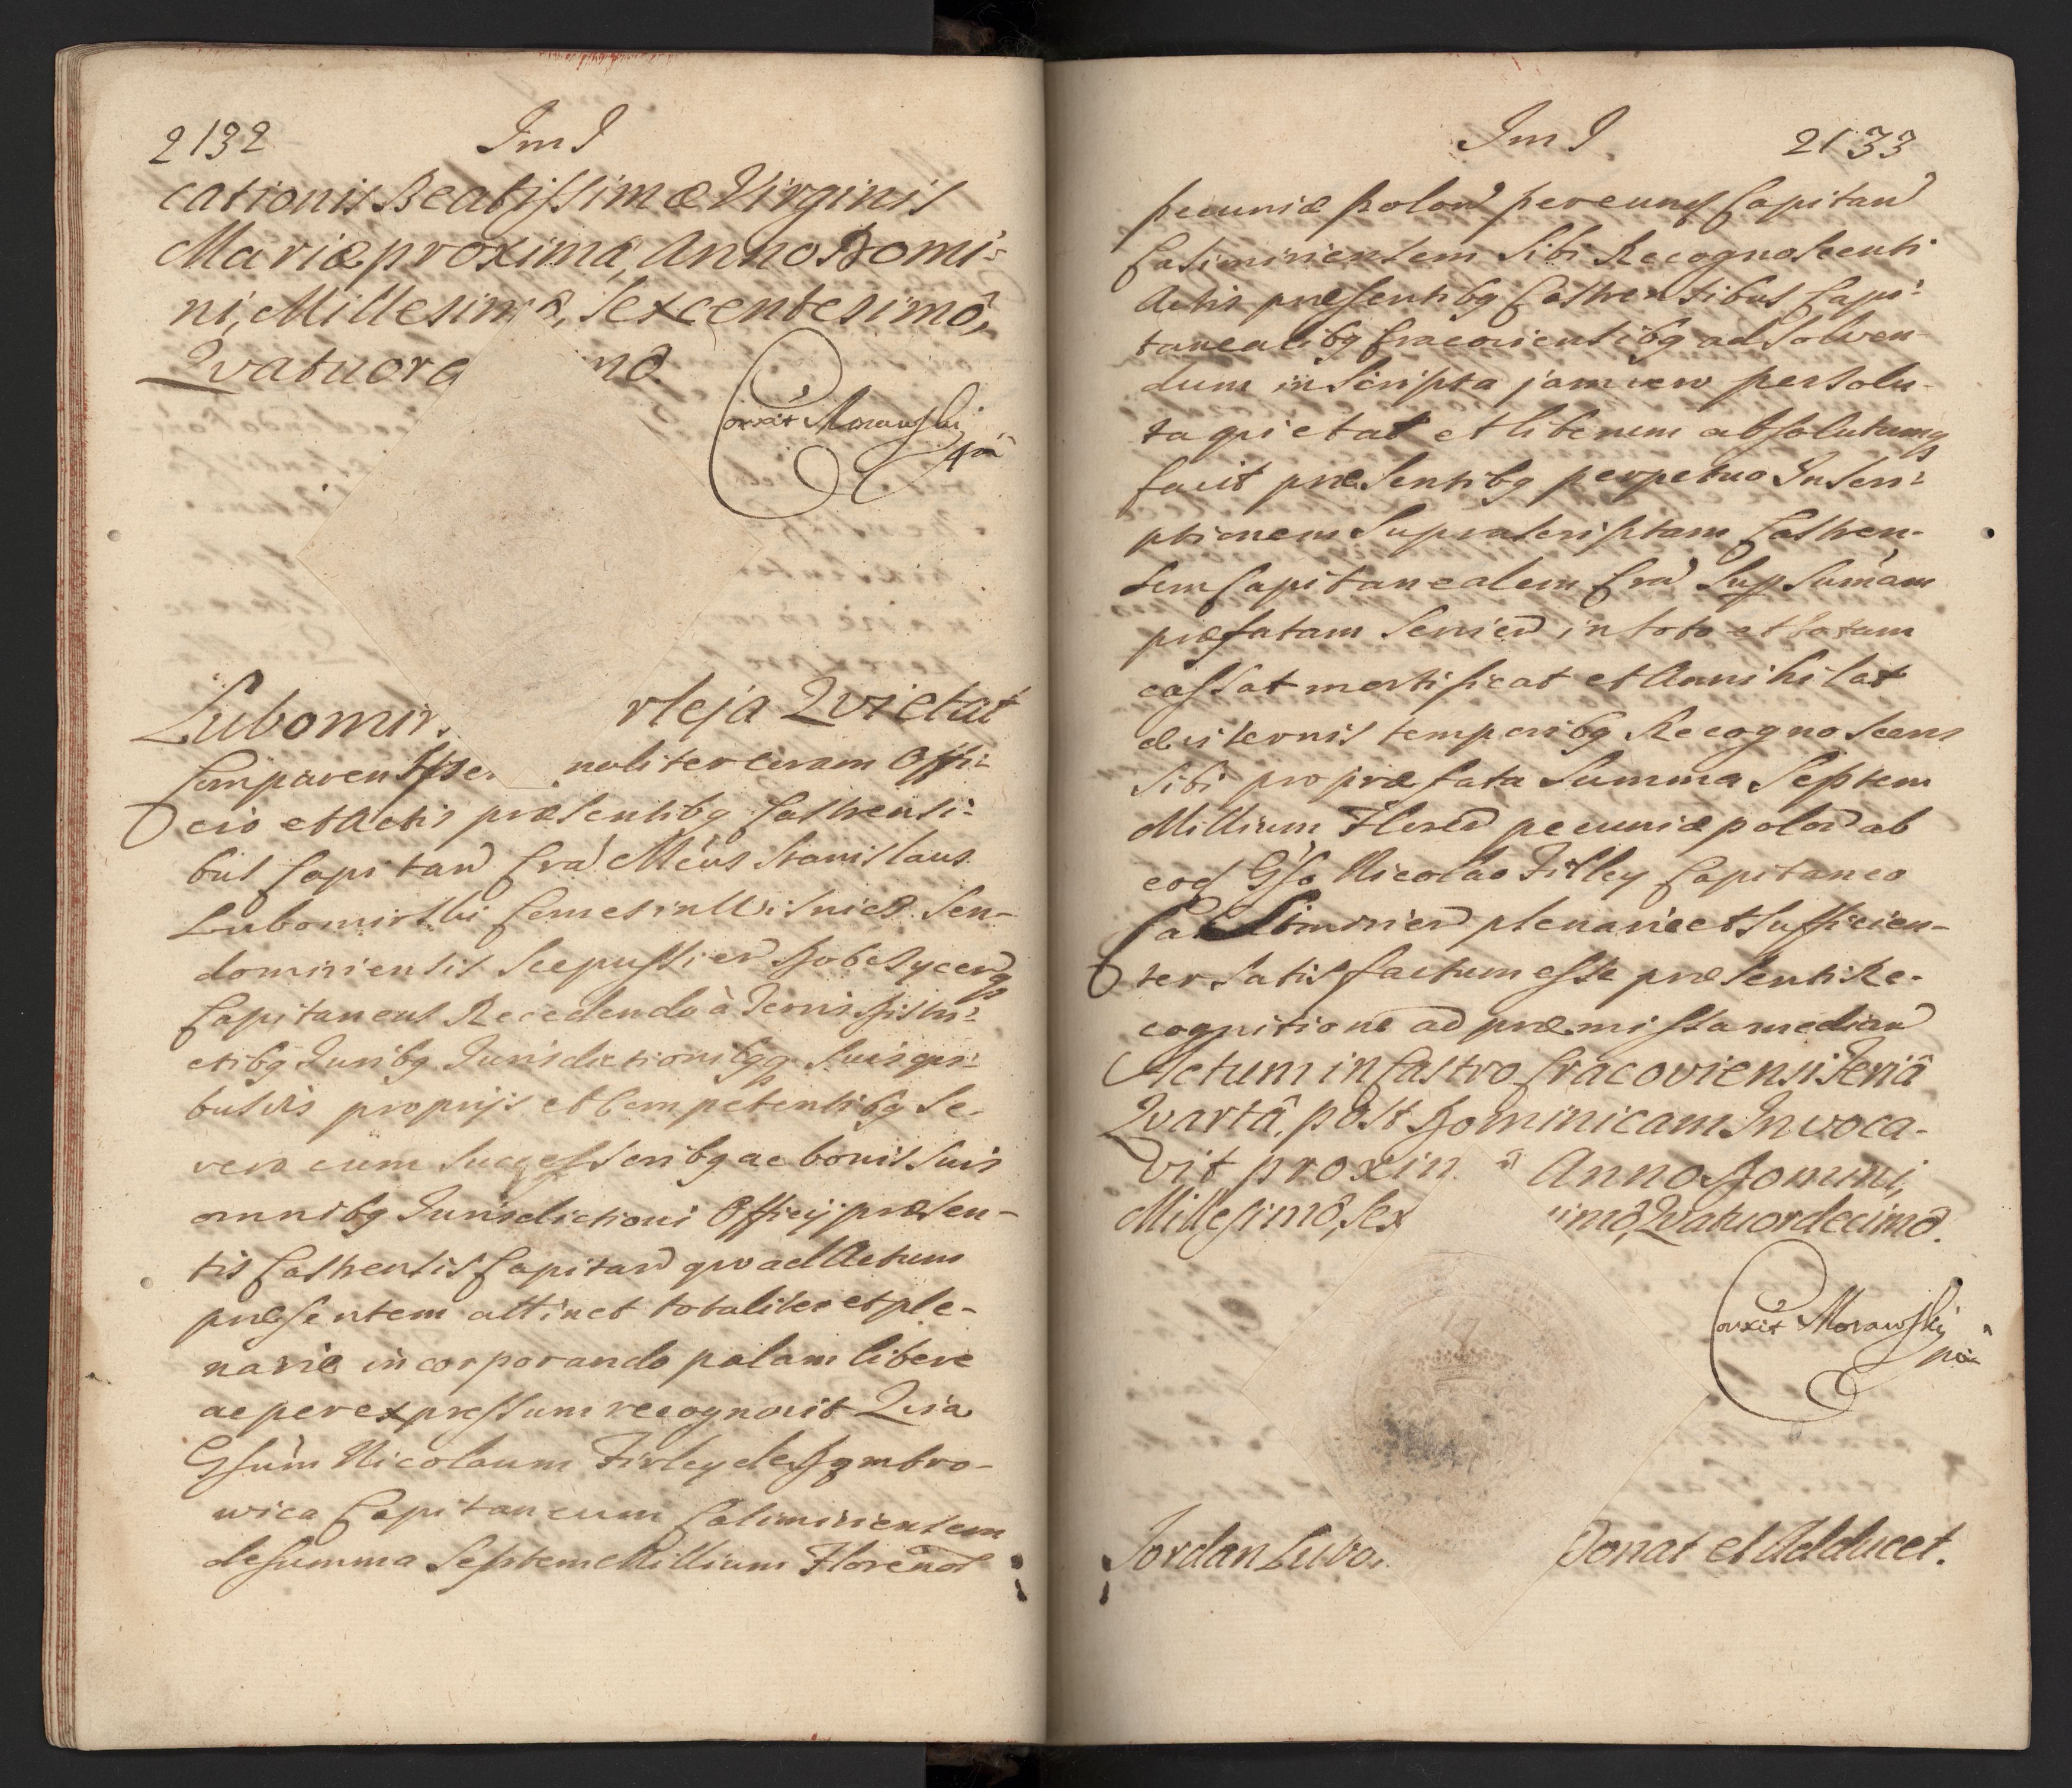 2132 Im I
cationis Beatissimæ Virginis
Mariæ proxima, Anno Domi-
ni, Millesimo, Sexcentesimô,
Qvatuord mô.
Corrxit Morawski
Lubomir. rleja Qvietat
Comparens per naliter coram Offi-
cio et Actis præsentibg Castrensi-
bus Capitan Cra Mcus Stanislaus
Lubomirski Comes in Wisnicz Sen-
domiriensis Scepussien Dobczycen
Capitaneus Recedendo à Terris Distri-
ctibg Juribg Jurisdictionibgq suis qui-
busvis proprijs et Competentibg Se-
vero cum Successoribg ac bonis suis
omnibg Jurisdictioni Officij præsen-
tis Castrensis Capitan quo ad Actum
præsentem attinet totaliter et ple-
narie incorporando palam libere
ac per expressum recognovit Qvia
Gsum Nicolaum Firley de Dąmbro-
wica Capitaneum Casimiriensem
de summa Septem Millium Florenor
Im I 2133
pecuniæ Polon per eund Capitan
Casimiriensem Sibi Recognoscenti
Actis præsentibg Castrensibus Capi-
tanealibg Cracoviensibg ad Solven-
dum inscripta jam vero persolu-
ta qvietat et liberum absolutumq
facit præsentibg perpetuo Inscri-
ptionem Suprascriptam Castren-
sem Capitanealem Cra Sup Sumam
præfatam Servien in toto et totam
cassat mortificat et Annihilat
æviternis temporibg Recognoscens
Sibi pro præfata Summa Septem
Millium Floren pecuniæ polon ab
eod Gso Nicolao Firley Capitaneo
Casimirien plenarie et Sufficien-
ter Satisfactum esse præsenti Re-
cognitione ad præmissa median
Actum in Castro Cracoviensi Feriâ
Qvartâ, post Dominicam Invoca-
vit proxim â Anno Domini,
Millesimô, Sex imô, Qvatuordecimô.
Corrxit Morawski
Jordan Lubo. Donat et Adducet.